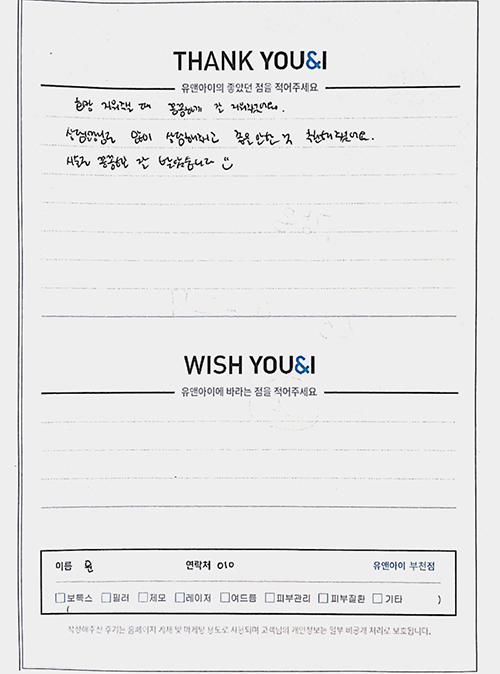 THANK YOU&I
유앤아이의 좋았던 점을 적어주세요
화장 지워줄 때 꼼꼼하게 잘 지워줬어요.
많이 상담해주고
시술 꼼꼼히 잘 받았습니다
WISH YOU&I
유앤아이에 바라는 점을 적어주세요
이름 윤 연락처 010 유앤아이 부천점
보톡스 필러 제모 레이저 여드름 피부관리 피부질환 기타 )
(
작성해주신 후기는 홈페이지 게재 및 마케팅 용도로 사용되며 고객님의 개인정보는 일부 비공개 처리로 보호됩니다.